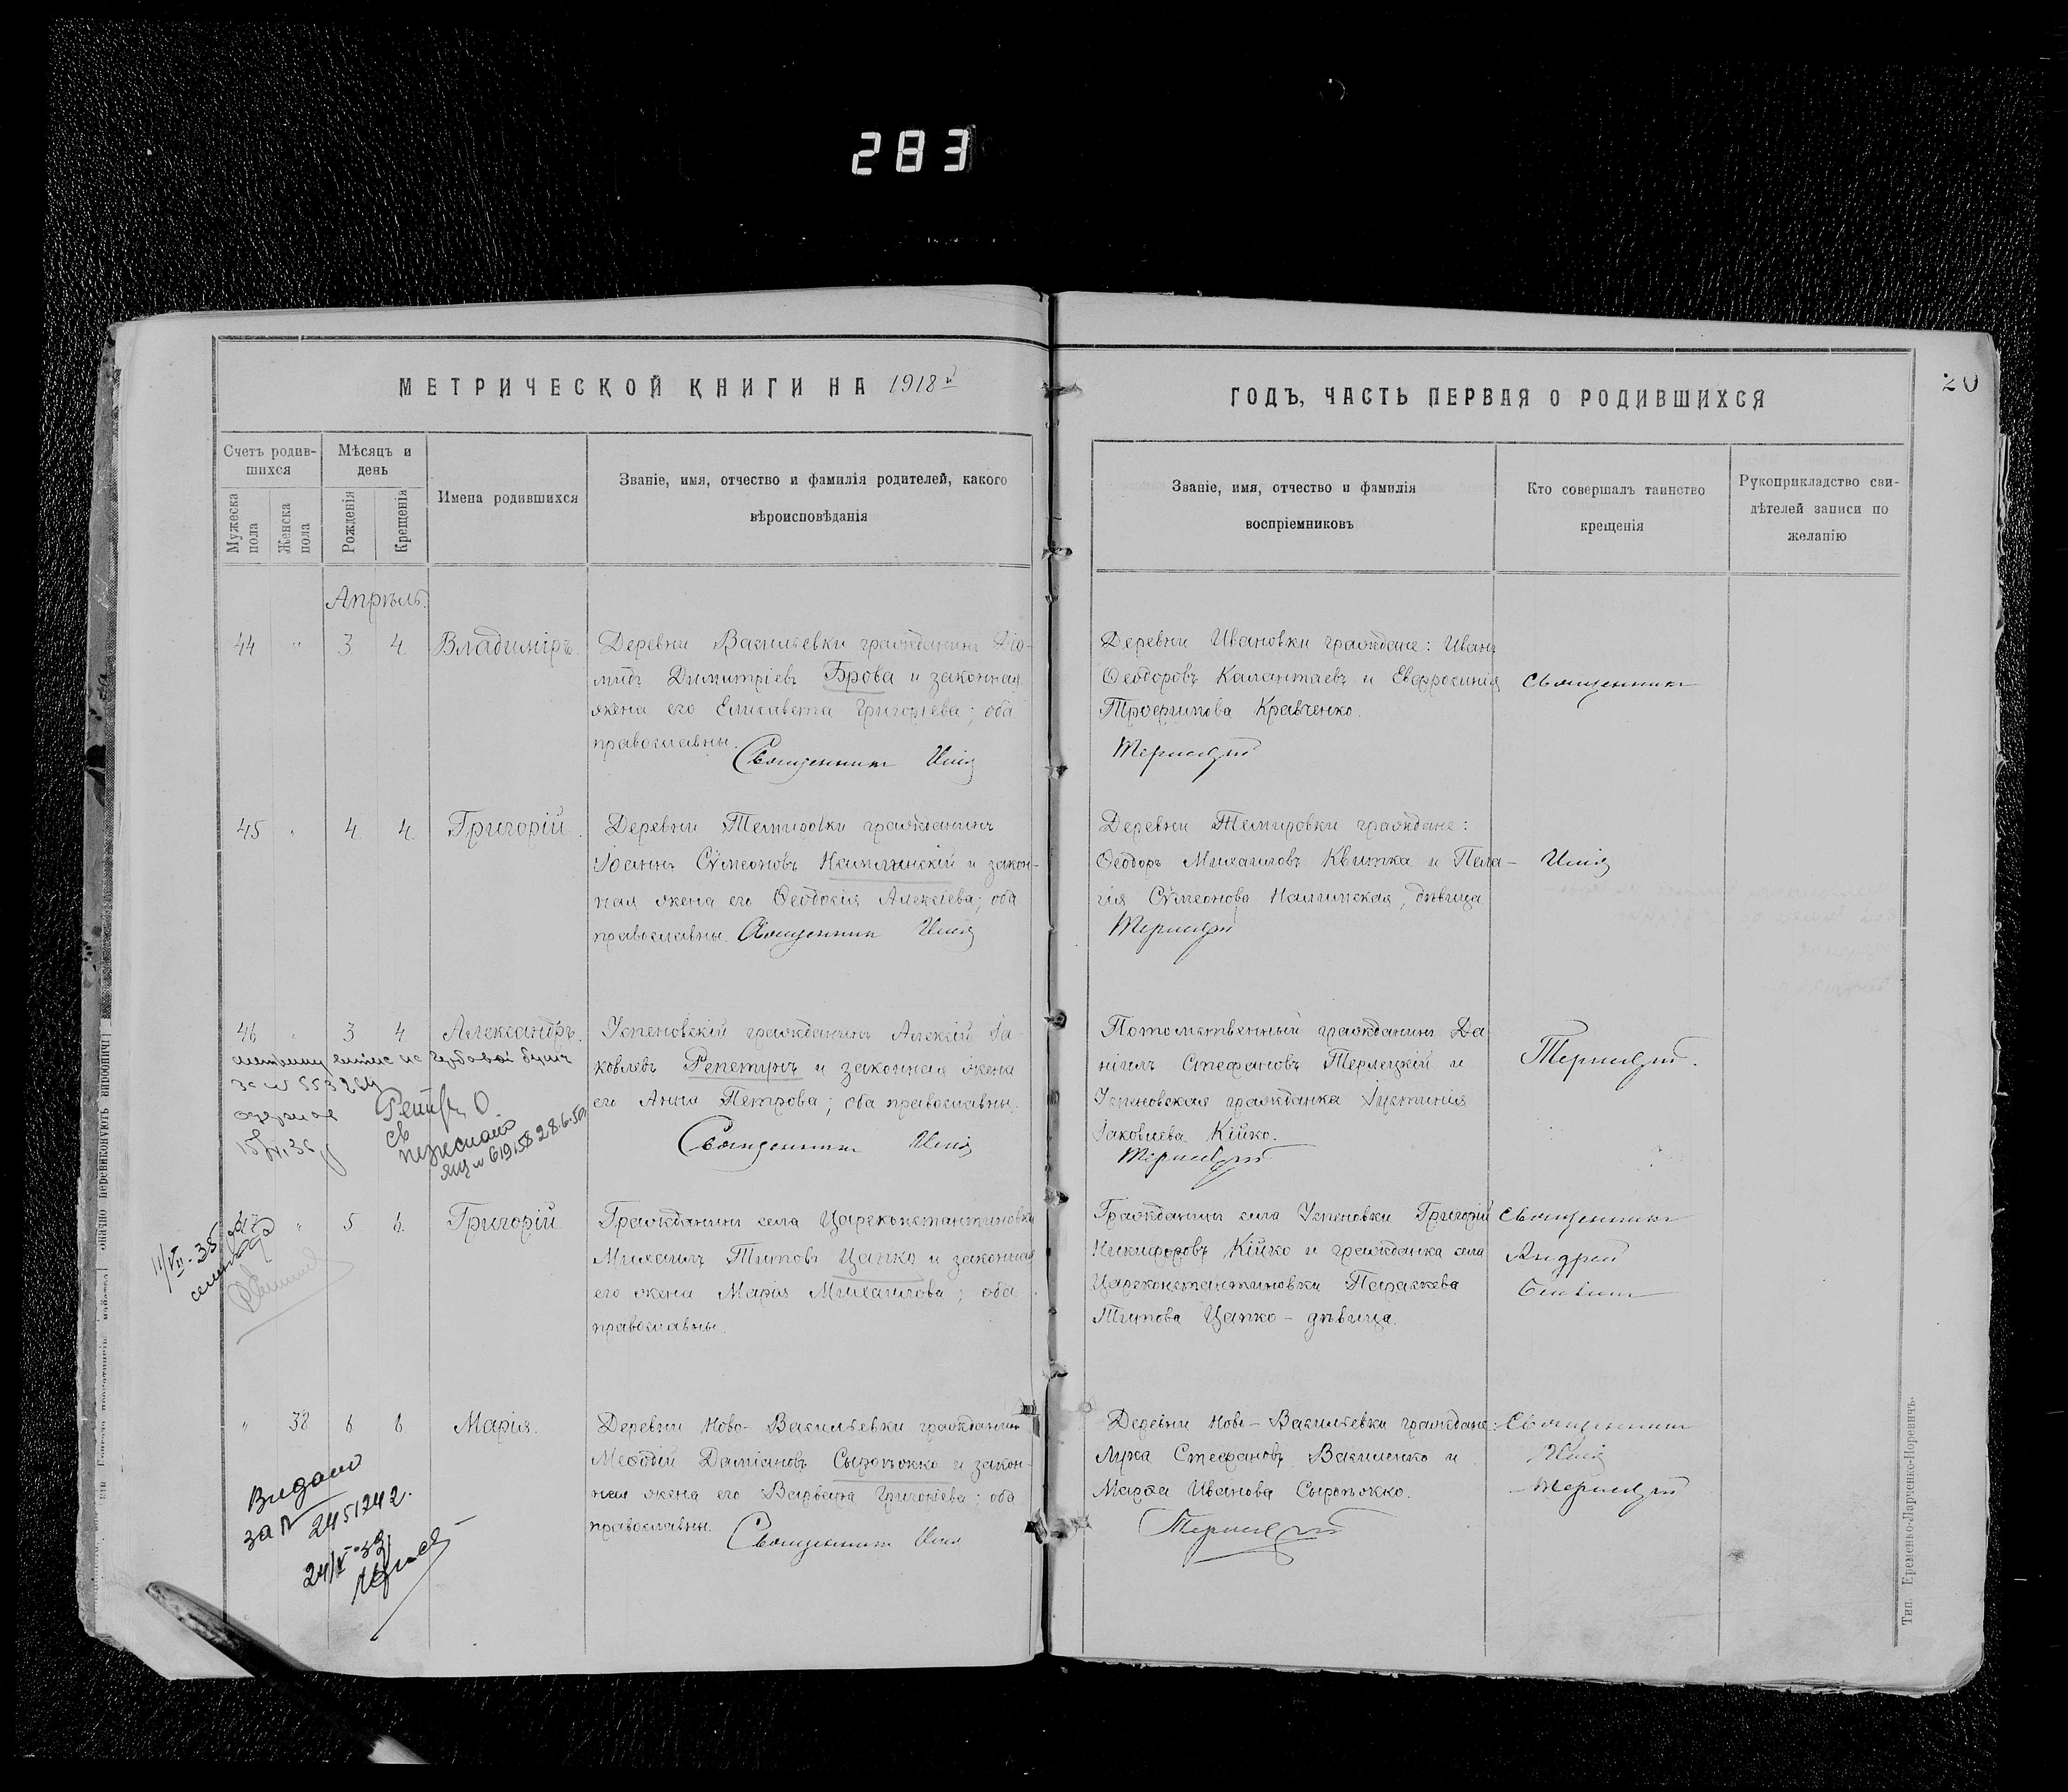 283
МЕТРИЧЕСКОЙ КНИГИ НА 1918й
ГОДЪ, ЧАСТЬ ПЕРВАЯ О РОДИВШИХСЯ
20
Счетъ родив-
шихся
Мѣсяцъ и
день
Имена родившихся
Званіе, имя, отчество и фамилія родителей, какого
вѣроисповѣданія
Званіе, имя, отчество и фамилія
воспріемниковъ
Кто совершалъ таинство
крещенія
Рукоприкладство сви-
дѣтелей записи по
желанію
Мужеска
пола
Женска
пола
Рожденія
Крещенія
Апрѣль.
44 " 3. 4. Владиміръ.
Деревни Васильевки гражданинъ Діо-
мидъ Димитріевъ Брова и законная
жена его Елисавета Григоріева; оба
православны.
Священникъ Илія
Деревни Ивановки граждане: Иванъ
Ѳеодоровъ Калантаевъ и Евфросинія
Трофимова Кравченко.
Терлецкій
Священникъ
45 " 4. 4. Григорій.
Деревни Темировки гражданинъ
Іоаннъ Сѵмеоновъ и закон-
ная жена его Ѳеодосія Алексіева; оба
православны. Священникъ Илія
Деревни Темировки граждане:
Ѳеодоръ Михаиловъ Квитка и Пела-
гія Сѵмеонова дѣвица
Терлецкій
Илія
46 " 3 4 Александръ.
Успеновскій гражданинъ Алексій Іа-
ковлевъ Репетунъ и законная жена
его Анна Петрова; оба православны.
Священникъ Илія
Потомственный гражданинъ Да-
ніилъ Стефановъ Терлецкій и
Успеновская гражданка Іустинія
Іаковлева Кійко.
Терлецкій
Терлецкій.
28.6.50
11/VII-35
" 5 6. Григорій
Гражданинъ села Цареконстантиновки
Михаилъ Титовъ Цапко и законная
его жена Марія Михаилова; оба
православны.
Гражданинъ села Успеновки Григорій
Никифоровъ Кійко и гражданка села
Цареконстантиновки Параскева
Титова Цапко - дѣвица.
Священникъ
Андрей
" 38 6 8 Марія.
Деревни Ново-Васильевки гражданинъ
Меѳодій Даміановъ и закон-
ная жена его Варвара Григоріева; оба
православны.
Священникъ Илія
Деревни Ново-Васильевки граждане:
Лука Стефановъ Василенко и
Марѳа Иванова
Терлецкій
Священникъ
Илія
Терлецкій
Видано
за №
2451242.
24/V-39
Тип. Еременко-Ларченко-Норевичъ.